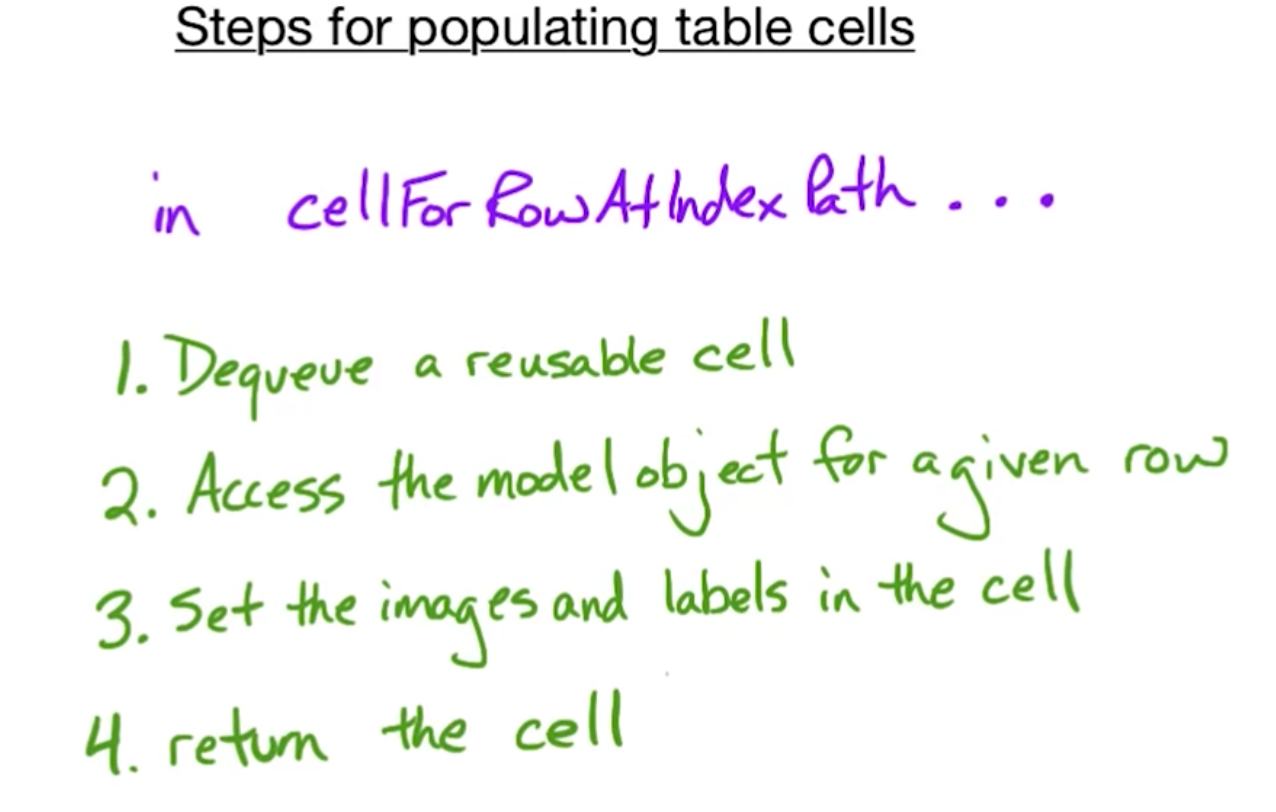 Steps for populating table cells
in cellForRowAtIndexPath...
1. Dequeue a reusable cell
2. Access the model object for a given row
3. Set the images and labels in the cell
4. return the cell